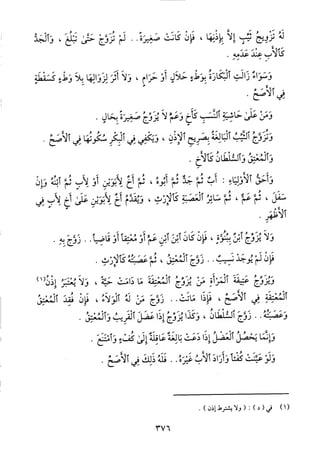 لَهُ تَزْوِيجُ ثَيِّبٍ إِلَّا بِإِذْنِهَا ، فَإِنْ كَانَتْ صَغِيرَةً . . لَمْ تُزَوَّجْ حَتَّىٰ تَبْلُغَ ، وَٱلْجَدُّ
كَالأَبِ عِنْدَ عَدَمِهِ .
وَسَوَاءٌ زَالَتِ ٱلْبَكَارَةُ بِوَطْءٍ حَلَالٍ أَوْ حَرَامٍ ، وَلَا أَثَرَ لِزَوَالِهَا بِلَا وَطْءٍ كَسَقْطَةٍ
فِي ٱلأَصَحِّ .
وَمَنْ عَلَىٰ حَاشِيَةِ ٱلنَّسَبِ كَأَخٍ وَعَمٍّ لَا يُزَوِّجُ صَغِيرَةً بِحَالٍ .
وَتُزَوَّجُ ٱلثَّيِّبُ ٱلْبَالِغَةُ بِصَرِيحِ ٱلإِذْنِ ، وَيَكْفِي فِي ٱلْبِكْرِ سُكُوتُهَا فِي ٱلأَصَحِّ .
وَٱلْمُعْتِقُ وَٱلسُّلْطَانُ كَالأَخِ .
وَأَحَقُّ ٱلأَوْلِيَاءِ : أَبٌ ثُمَّ جَدٌّ ثُمَّ أَبُوهُ ، ثُمَّ أَخٌ لِأَبَوَيْنِ أَوْ لِأَبٍ ثُمَّ ٱبْنُهُ وَإِنْ
سَفَلَ ، ثُمَّ عَمٌّ ، ثُمَّ سَائِرُ ٱلْعَصَبَةِ كَالإِرْثِ ، وَيُقَدَّمُ أَخٌ لِأَبَوَيْنِ عَلَىٰ أَخٍ لِأَبٍ فِي
ٱلأَظْهَرِ .
وَلَا يُزَوِّجُ ٱبْنٌ بِبُنُوَّةٍ ، فَإِنْ كَانَ ٱبْنَ ٱبْنِ عَمٍّ أَوْ مُعْتِقاً أَوْ قَاضِياً . . زَوَّجَ بِهِ .
فَإِنْ لَمْ يُوجَدْ نَسِيبٌ . . زَوَّجَ ٱلْمُعْتِقُ ، ثُمَّ عَصَبَتُهُ كَالإِرْثِ .
وَيُزَوِّجُ عَتِيقَةَ ٱلْمَرْأَةِ مَنْ يُزَوِّجُ ٱلْمُعْتِقَةَ مَا دَامَتْ حَيَّةً ، وَلَا يُعْتَبَرُ إِذْنُ(١)
ٱلْمُعْتِقَةِ فِي ٱلأَصَحِّ ، فَإِذَا مَاتَتْ . . زَوَّجَ مَنْ لَهُ ٱلْوَلَاءُ ، فَإِنْ فُقِدَ ٱلْمُعْتِقُ
وَعَصَبَتُهُ . . زَوَّجَ ٱلسُّلْطَانُ ، وَكَذَا يُزَوِّجُ إِذَا عَضَلَ ٱلْقَرِيبُ وَٱلْمُعْتِقُ .
وَإِنَّمَا يَحْصُلُ ٱلْعَضْلُ إِذَا دَعَتْ بَالِغَةٌ عَاقِلَةٌ إِلَىٰ كُفْءٍ وَٱمْتَنَعَ .
وَلَوْ عَيَّنَتْ كُفْئاً وَأَرَادَ ٱلأَبُ غَيْرَهُ . . فَلَهُ ذٰلِكَ فِي ٱلأَصَحِّ .
(١) في (د) : ( ولا يشترط إذن ) .
٣٧٦